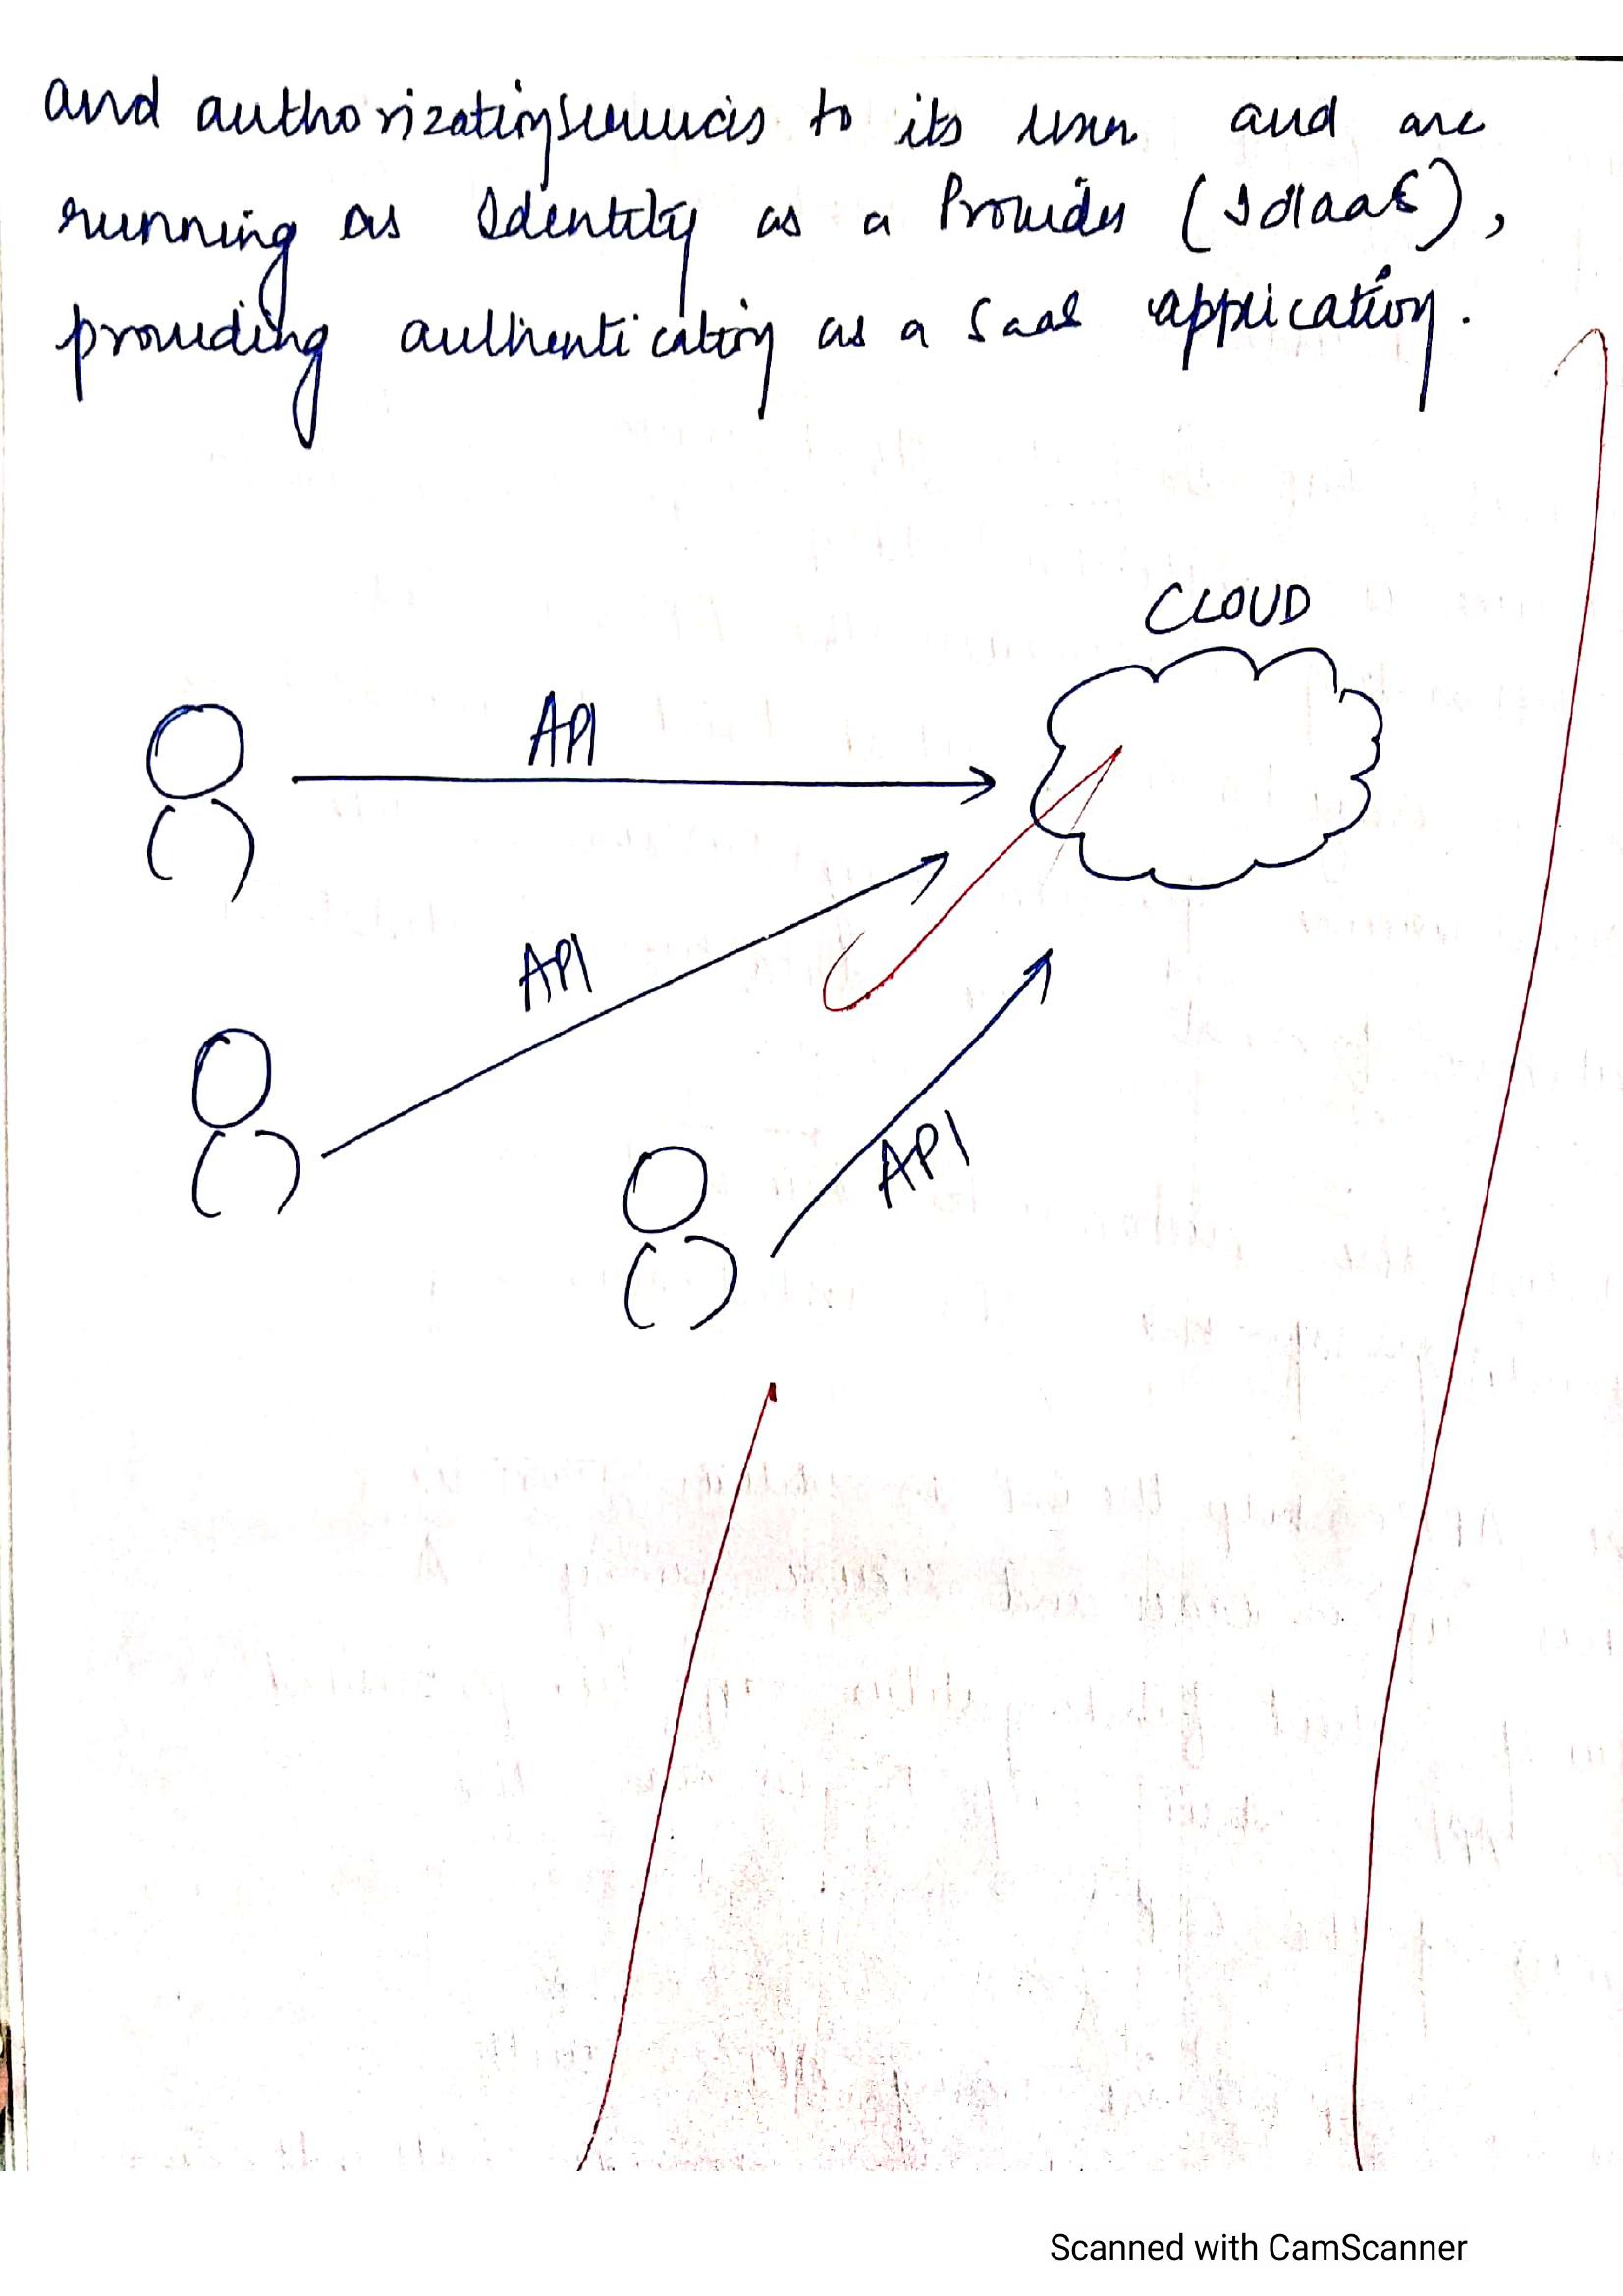 and authorization services to its user and are
running as Identity as a Provider (IdaaS),
providing authentication as a SaaS application.
CLOUD
API
API
API
Scanned with CamScanner